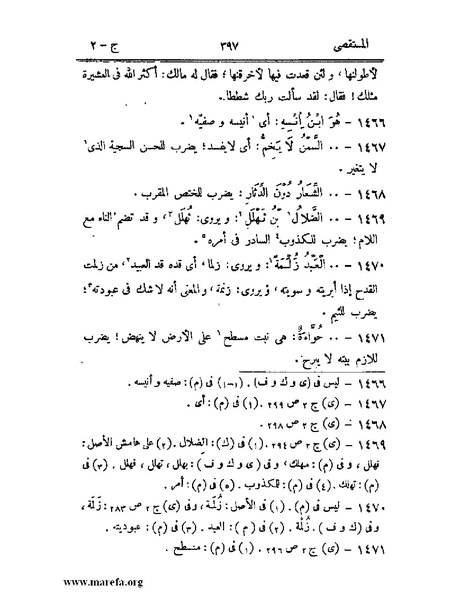 المستقصى ٣٩٧ ج – ٢
لأطولنها، و لئن قعدت فيها لأخرقنها؛ فقال له مالك: أكثر الله فى العشيرة
مثلك! فقال: لقد سألت ربك شططا.
١٤٦٦ – هُوَ ابْنُ إِنْسِهِ: أى ١أنيسه و صفيه١.
١٤٦٧ – ٠٠ السَّمْنُ لَا يَخِمُّ: أى لايفسد؛ يضرب للحسن السجية الذى١
لا يتغير.
١٤٦٨ – ٠٠ الشِّعَارُ دُونَ الدِّثَارِ: يضرب للمختص المقرب.
١٤٦٩ – ٠٠ الضَّلَالُ١ بْنُ فَهْلَلَ٢: و يروى: ثُهْلَلَ٣، و قد تضم الثاء مع
اللام؛ يضرب للكذوب٤ السادر فى أمره٥.
١٤٧٠ – ٠٠ الْعَبْدُ زُلْمَةً١: و يروى: زلما، أى قده قد العبيد٢، من زلمت
القدح إذا أبريته و سويته، و يروى: زنمة، و المعنى أنه لا شك فى عبودته٣؛
يضرب للئيم.
١٤٧١ – ٠٠ حُوَّاءَةٌ: هى نبت مسطح١ على الأرض لا ينهض؛ يضرب
للازم بيته لا يبرح.
١٤٦٦ – ليس فى (ى و ك و ف). (١–١) فى (م): صفيه و أنيسه.
١٤٦٧ – (ى) ج ٢ ص ٢٩٩. (١) فى (م): أى.
١٤٦٨ – (ى) ج ٢ ص ٢٩٨.
١٤٦٩ – (ى) ج ٢ ص ٢٩٤. (١) فى (ك): الضلال. (٢) على هامش الأصل:
فهلل، و فى (م): مهلك، و فى (ى و ك و ف): بهلل، تهلل، فهلل. (٣) فى
(م): تهلك. (٤) فى (م): للمكذوب. (٥) فى (م): أمر.
١٤٧٠ – ليس فى (م). (١) فى الأصل: زُلَمة، و فى (ى) ج ٢ ص ٢٨٣: زَلَمة،
و فى (ك و ف). زُلْمة (٢) فى (م): العبد. (٣) فى (م): عبوديته.
١٤٧١ – (ى) ج ٢ ص ٢٩٦. (١) فى (م): منسطح.
www.marefa.org